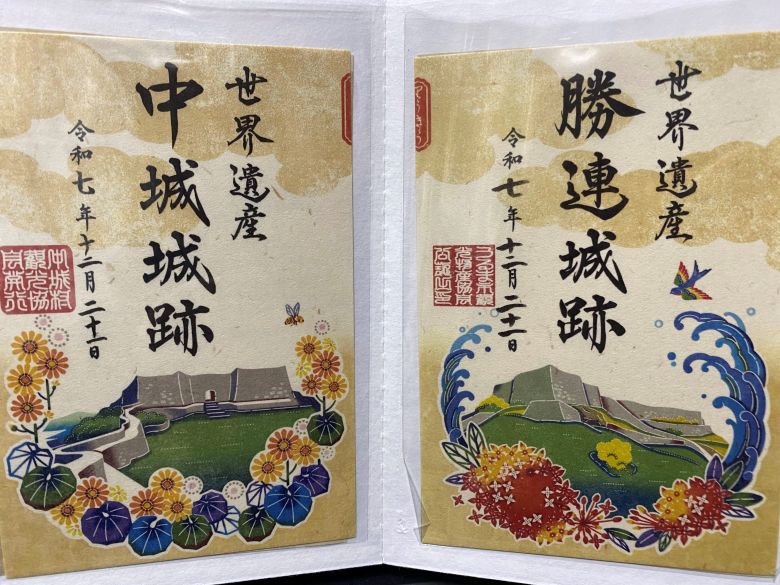 世界遺産
中城城跡
令和七年十二月二十一日
中城村
觀光協
世界遺産
勝連城跡
令和七年十二月二十一日
うるま市觀
光物産協